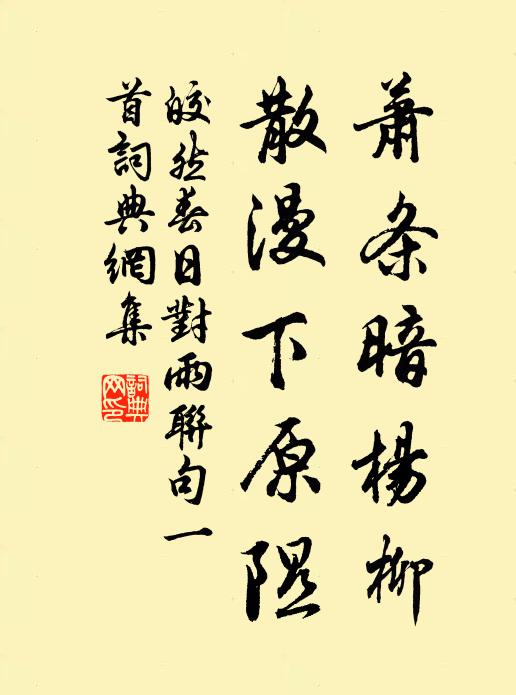 蕭条暗楊柳
散漫下原隰
皎然春日對雨聯句一
首詞典網集
詞典
网印